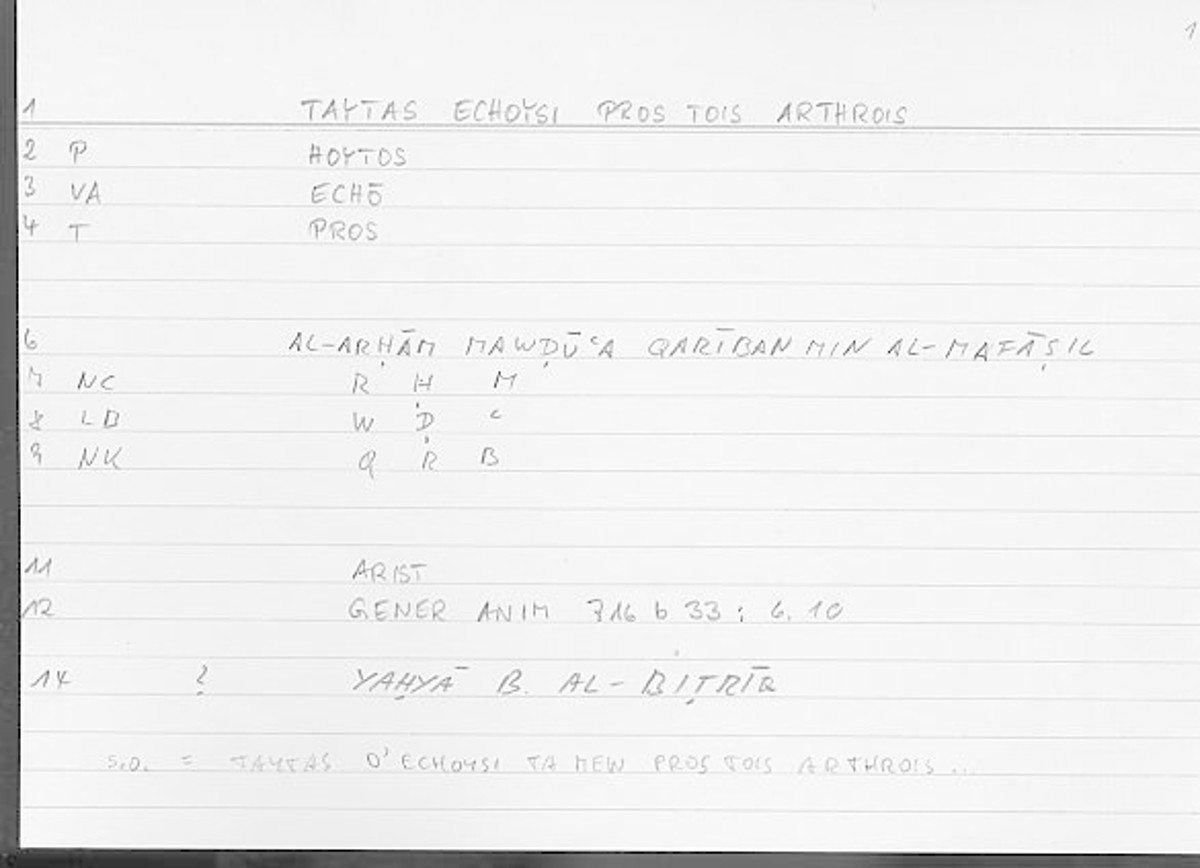 1
1 TAYTAS ECHOYSI PROS TOIS ARTHROIS
2 P HOYTOS
3 VA ECHŌ
4 T PROS
6 AL-ARḤĀM MAWḌŪʿA QARĪBAN MIN AL-MAFĀṢIL
7 NC R Ḥ M
8 LB W Ḍ ʿ
9 NK Q R B
11 ARIST
12 GENER ANIM 716 b 33 : 6. 10
14 ? YAḤYĀ B. AL-BIṬRĪQ
S.O. = TAYTAS D' ECHOYSI TA MEN PROS TOIS ARTHROIS ...